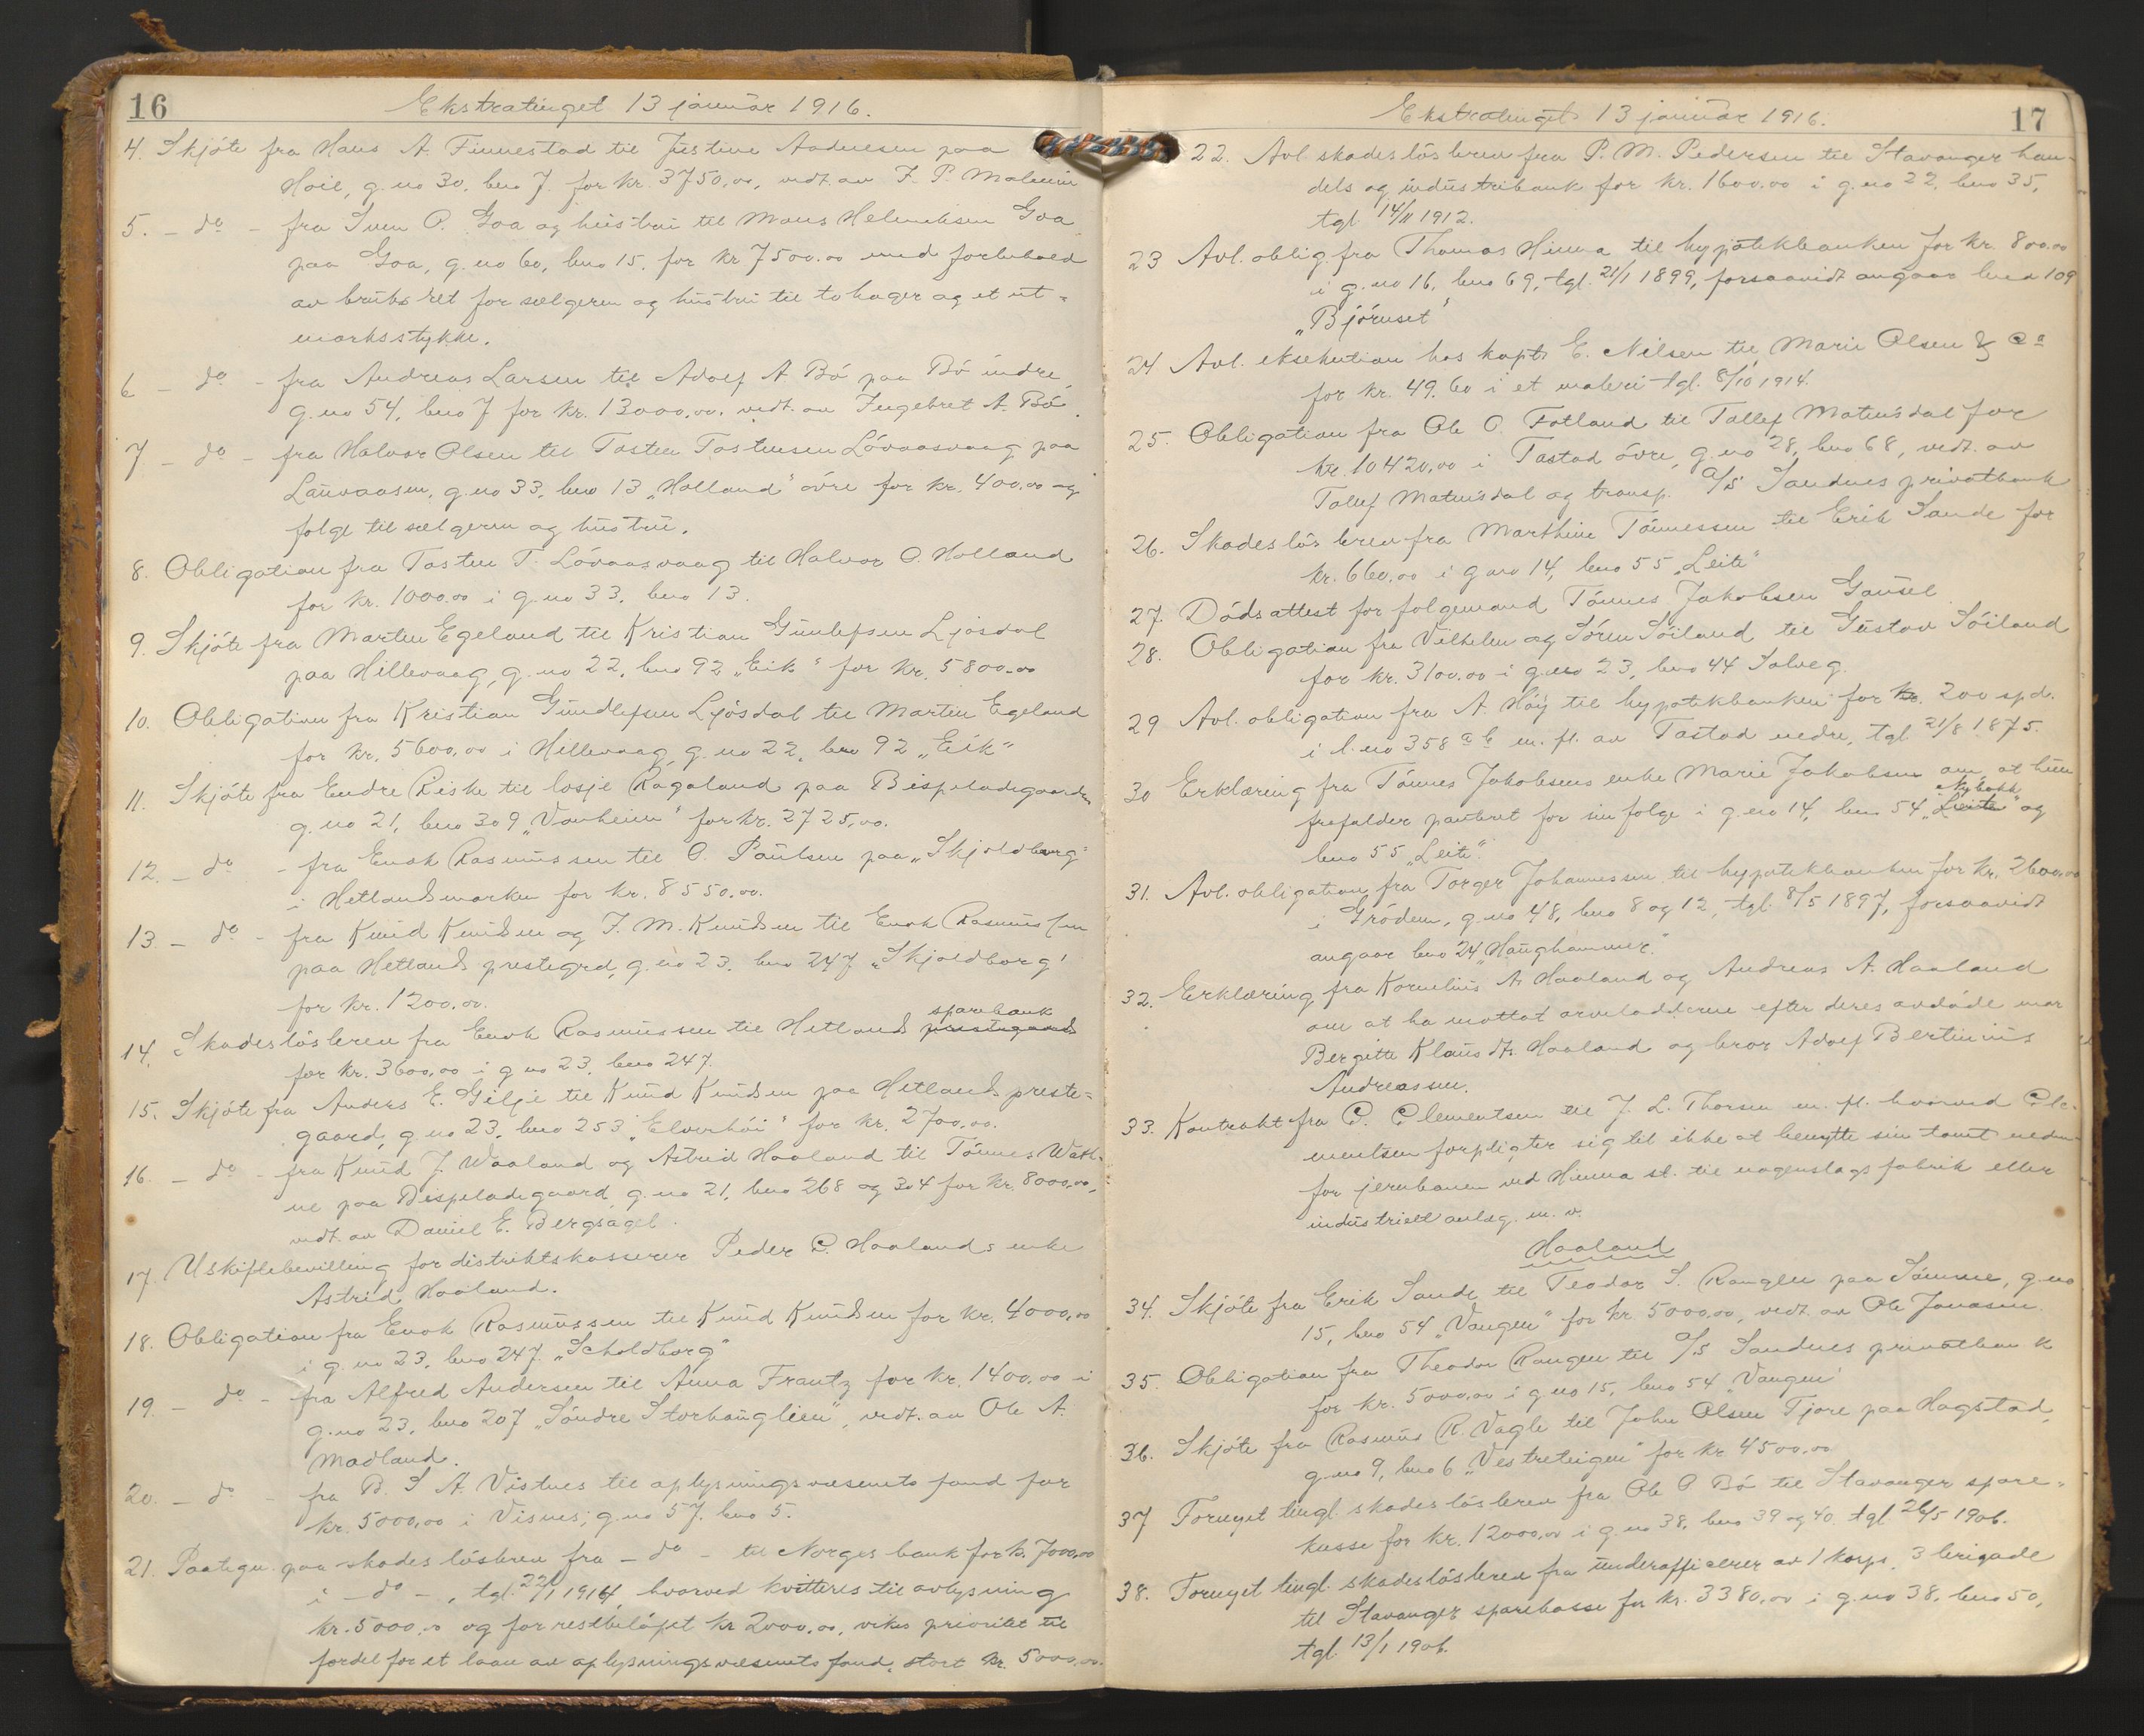 16
Ekstratinget 13 januar 1916.
4. Skjöte fra Hans A. Finnestad til Justine Aadnesen paa
Hoie, g.no 30, bno 7. for kr. 3750,00, vedt. av F. P. Malmin
5. - do - fra Sven O. Goa og hustru til Mons Helmiksen Goa
paa Goa, g.no 60, bno 15. for kr 7500.00 med forbehold
av bruks ret for sælgeren og hustru til to hager og et ut=
marksstykke.
6 - do - fra Andreas Larsen til Adolf A Bö paa Bö indre,
g.no 54, bno 7 for kr. 13000,00. vedt. av Ingebret A. Bö.
7 - do - fra Halvor Olsen til Tosten Tostensen Lövaasvaag paa
Lauvaasen, g.no 33, bno 13 "Holland" övre for kr. 400,00 og
folge til sælgeren og hustru.
8. Obligation fra Tosten T. Lövaasvaag til Halvor O. Holland
for kr. 1000.00 i g.no 33, bno 13.
9. Skjöte fra Marten Egeland til Kristian Gunlefsen Ljosdal
paa Hillevaag, g.no 22, bno 92 "Eik" for kr. 5800.00
10. Obligation fra Kristian Gundlefsen Ljösdal til Martin Egeland
for kr. 5600,00 i Hillevaag g.no 22, bno 92 "Eik"
11. Skjöte fra Endre Riske til losje Rogaland paa Bispeladegaarden
g.no 21, bno 309 "Vonheim" for kr. 2725,00.
12. - do - fra Enok Rasmussen til O. Paulsen paa "Skjoldborg"
i Hetlandsmarken for kr. 8550.00.
13. - do - fra Knud Knudsen og J. M. Knudsen til Enok Rasmussen
paa Hetlands prestegrd, g.no 23. bno 247 "Skjoldborg"
for kr. 1200.00.
14. Skadeslösbrev fra Enok Rasmussen til Hetlands prestegaards sparebank
for kr. 3600,00 i g no 23. bno 247.
15. Skjöte fra Anders E. Gilje til Knud Knudsen paa Hetlands preste=
gaard, g.no 23, bno 253 "Elverhöi" for kr. 2700,00.
16. - do - fra Knud J. Waaland og Astrid Haaland til Tönnes Wath-
ne paa Bispeladegaard g.no 21, bno 268 og 304 for kr. 8000,00,
vedt. av Daniel E. Bergsagel.
17. Uskiftebevilling for distriktskasserer Peder C. Haalands enke
Astrid Haaland.
18. Obligation fra Enok Rasmussen til Knud Knudsen for kr. 4000,00
i g.no 23, bno 247. "Scholdborg"
19. - do - fra Alfred Andersen til Anna Frantz for kr. 1400.00 i
g.no 23, bno 207 "Söndre Storhauglien", vedt. av Ole A.
Madland.
20. - do - fra B. S A. Vistnes til oplysningsvæsenets fond for
kr. 5000,00 i Visnes; g.no 57. bno 5.
21. Paategn. paa skadeslösbrev fra - do - til Norges bank for kr. 7000,00
i - do -, tgl. 22/1 1914, hvorved kvitteres til avlysning
kr. 5000.00 og for restbelöpet kr 2000.00, vikes prioritet til
fordel for et laan av oplysningsvæsenets fond, stort kr. 5000.00.
17
Ekstratinget 13 januar 1916.
22. Avl skadeslösbrev fra P. M. Pedersen til Stavanger han-
dels og industribank for kr. 1600.00 i g.no 22, bno 35,
tgl. 14/11 1912.
23 Avl. oblig. fra Thomas Hinna til hypotekbanken for kr. 800.00
i g.no 16, bno 69, tgl. 21/1 1899, forsaavidt angaar bno 109
"Björnset"
24 Avl. eksekution hos kapt. E. Nilsen til Marie Olsen & Co
for kr. 49.60 i et maleri tgl. 8/10 1914.
25. Obligation fra Ole O. Fotland til Tollef Matsusdal for
kr. 10420,00 i Tastad övre, g.no 28, bno 68, vedt. av
Tollef Matsusdal og transp. A/S Sandnes privatbank
26. Skadeslösbrev fra Marthine Tönnessen til Erik Sande for
kr. 660,00 i g.no 14, bno 55 "Leite"
27. Dödsattest for folgemand Tönnes Jakobsen Gausel
28. Obligation fra Vilhelm og Sören Söiland til Gustav Söiland
for kr. 3100.00 i g.no 23, bno 44 Solveg.
29 Avl. obligation fra A. Höy til hypotekbanken for kr. 200 spd.
i l.no 358 a b m. fl. av Tastad nedre, tgl. 21/8 1875.
30 Erklæring fra Tönnes Jakobsens enke Marie Jakobsen om, at hun
frafalder panteret for sin folge i g.no 14, bno 54 "Leite" Nybakk og
bno 55 "Leite".
31. Avl. obligation fra Torger Johannessen til hypotekbanken for kr. 2600,00
i Grödem, g.no 48, bno 8 og 12, tgl. 8/5 1897, forsaavidt
angaar bno 24 "Haughammer."
32. Erklæring fra Kornelius A Haaland og Andreas A. Haaland
om at ha mottat arveladderne efter deres avdöde mor
Bergitte Klaus dtr. Haaland og bror Adolf Bertinius
Andreassen.
33. Kontrakt fra C. Clementsen til J. L. Thorsen m. fl. hvorved Cle-
mentsen forpligter sig til ikke at benytte sin tomt neden-
for jernbanen ved Hinna st. til nogenslags fabrik eller
industrielt anlæg. m. v.
Haaland
34. Skjöte fra Erik Sande til Teodor S. Rangen paa Sömme, g.no
15, bno 54 "Vangen" for kr. 5000,00, vedt. av Ole Jonasen.
35. Obligation fra Theodor Rangen til A/S Sandnes privatbank
for kr. 5000.00 i g.no 15, bno 54 "Vangen"
36. Skjöte fra Rasmus R. Vagle til John Olsen Tjore paa Hogstad,
g.no 9, bno 6 "Vestreteigen" for kr 4500.00.
37 Fornyet tingl. skadeslösbrev fra Ole O Bö til Stavanger spare-
kasse for kr. 12000,00 i g.no 38, bno 39 og 40. tgl. 26/5 1906.
38. Fornyet tingl. skadeslösbrev fra underofficerer av 1 korps, 3 brigade
til Stavanger sparekasse for kr. 3380,00 i g.no 38, bno 50,
tgl. 13/1 1906.